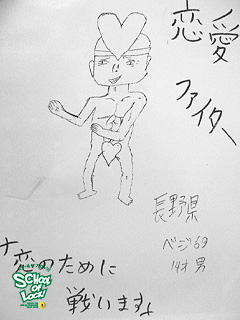 恋愛
ファイター
長野県
ベジ69
14才 男
恋のために
戦いますょ
SCHOOL
OF
LOCK!